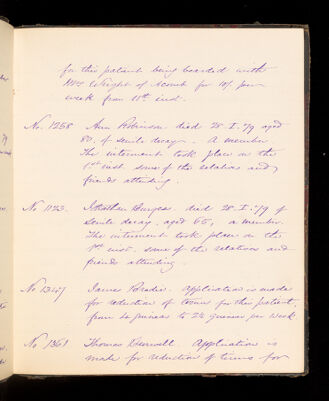 for this patient being boarded with
Mrs Wright of Acomb for 10/ per
week from 11th inst.
No. 1258 Ann Robinson died 28.I.79 aged
80, of senile decay. A member
The interment took place on the
1st inst. some of the relatives and
friends attending.
No 1123. Jonathan Burgess. died 28.I.79 of
senile decay, aged 65, a member.
The interment took place on the
1st inst. some of the relatives and
friends attending.
No 1347 James Brodie. Application is made
for reduction of terms for this patient,
from 4 guineas to 2½ guineas per week.
No 1361 Thomas Application is
made for reduction of terms for